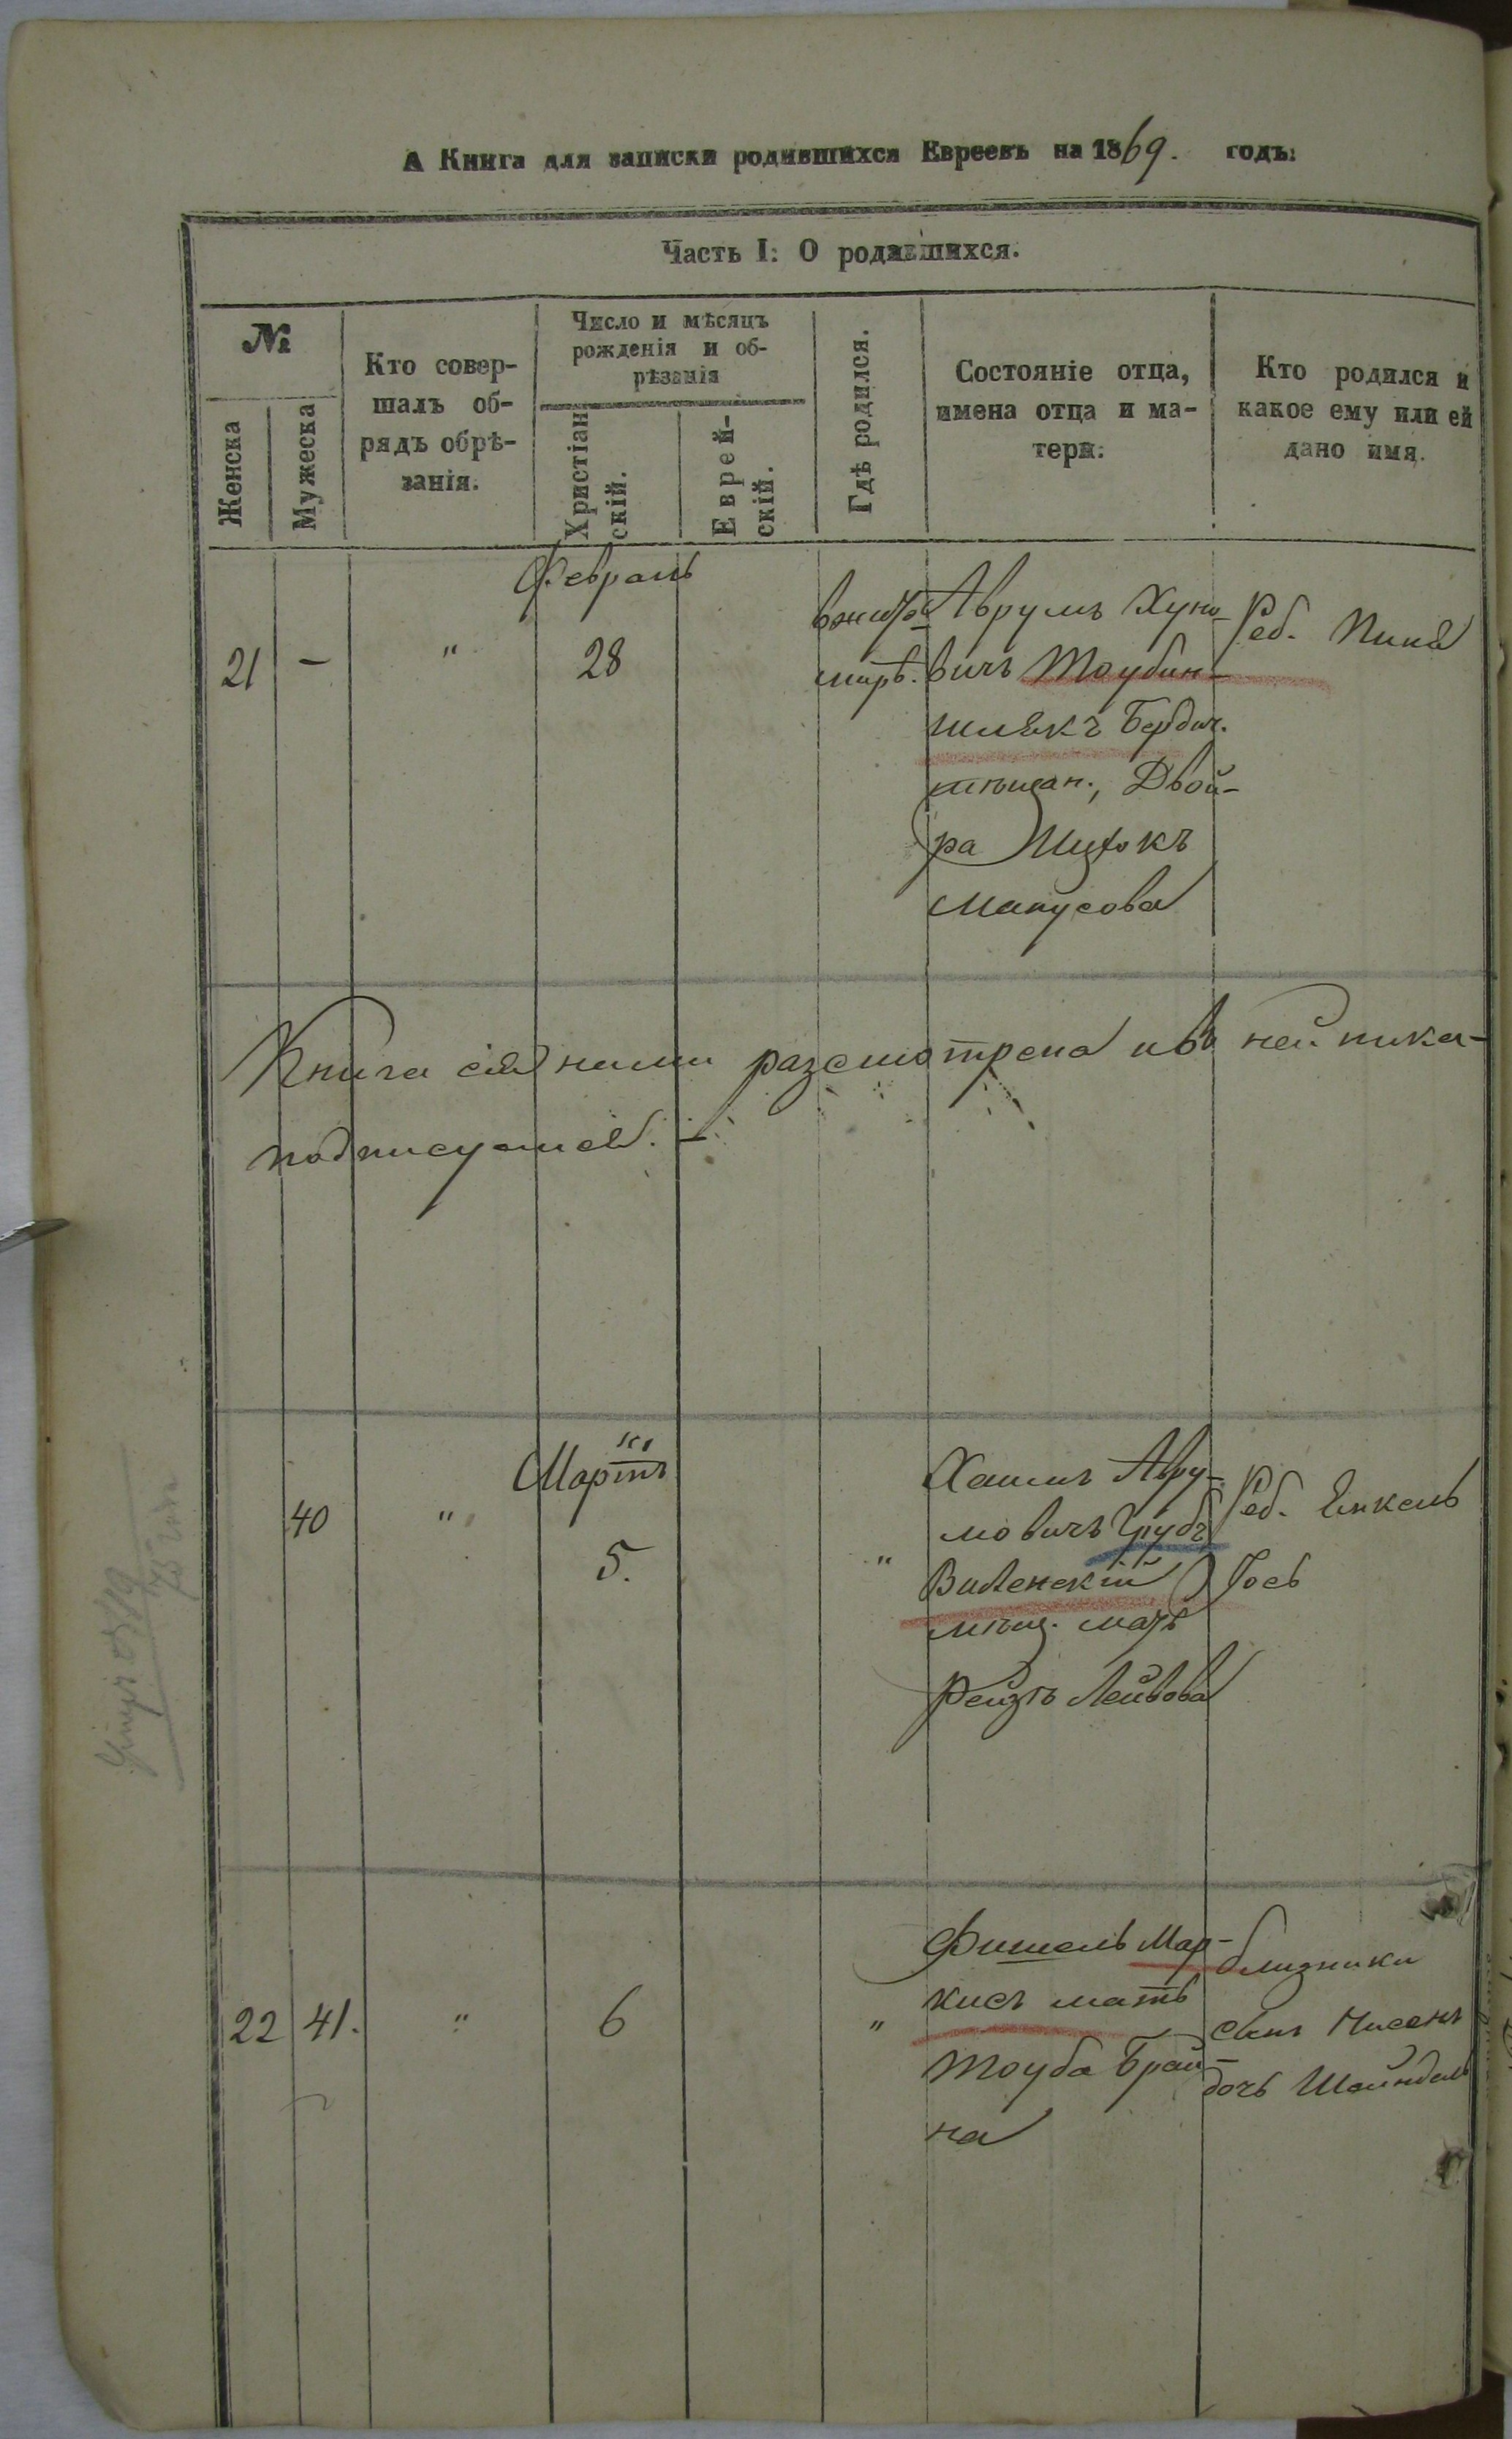 А Книга для записки родившихся Евреевъ на 1869. годъ:
Часть I: О родившихся.
№
Женска
Мужеска
Кто совер-
шалъ об-
рядъ обрѣ-
занія.
Число и мѣсяцъ
рожденія и об-
рѣзанія
Христіан
скій.
Еврей-
скій.
Гдѣ родился.
Состояніе отца,
имена отца и ма-
тери:
Кто родился и
какое ему или ей
дано имя.
Февраль
21 – " 28
Аврумъ Хуно-
вичъ Тоубин-
шлякъ Бердич.
мѣщан., Двой-
ра
Манусова
Реб.
Книга сія нами разсмотрена и въ ней ника-
подписуемся. –
Мартъ
40 " 5. "
Хаимъ Авру-
мовичъ
Виленскій
мѣщ. мать
Рейзя Лейбова
Реб. Янкель
Іось
22 41. " 6 "
Фишель Мар-
кисъ мать
Тоуба Брай-
на
близники
сынъ Нисенъ
дочь Шейндель